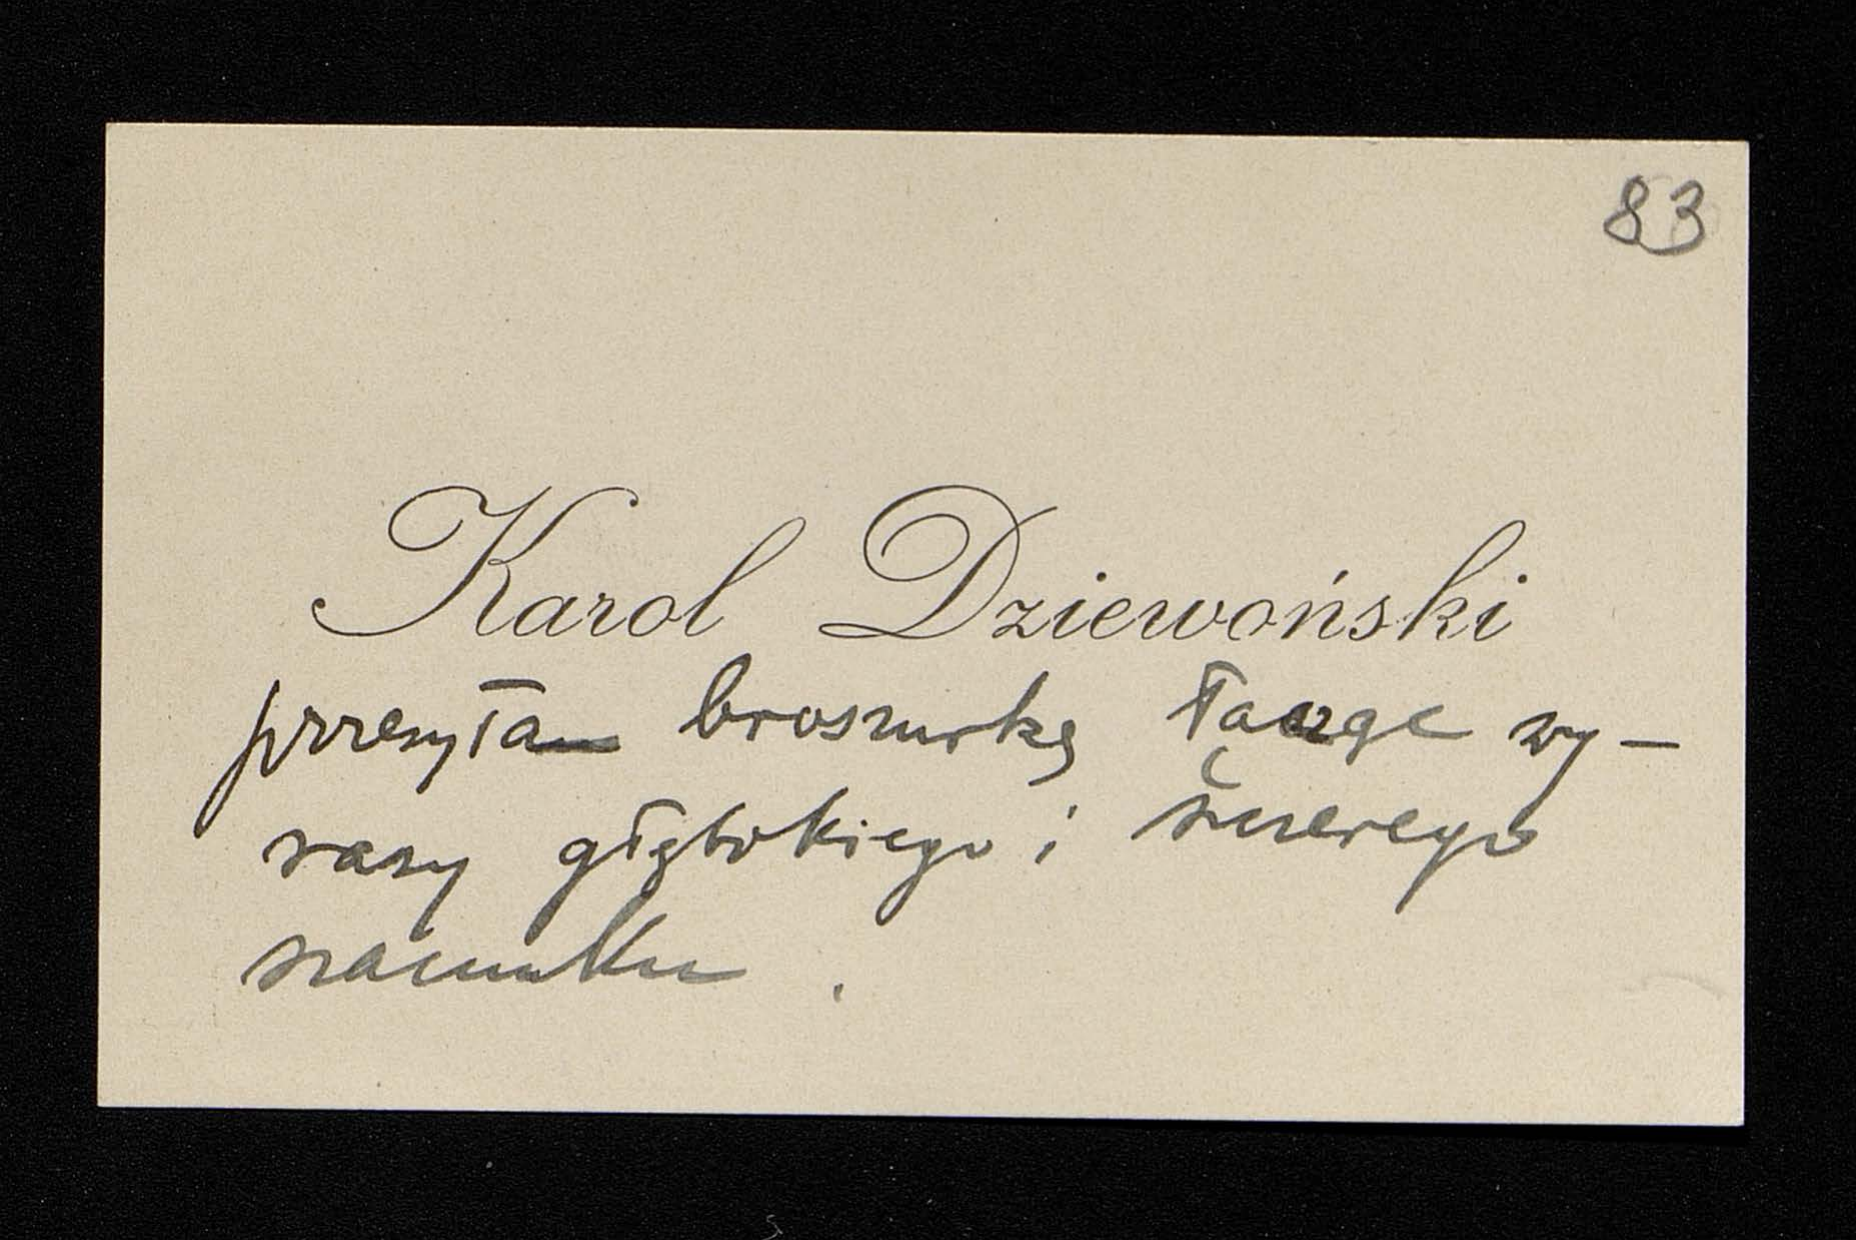 83
Karol Dziewoński
przesyłam broszurkę łącząc wy-
razy głębokiego i szczerego
szacunku.